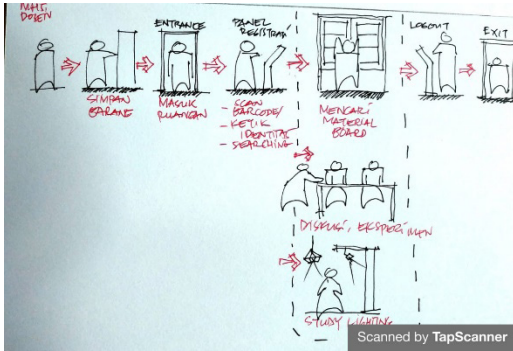 MHS,
DOSEN
ENTRANCE
PANEL
REGISTRASI
LOGOUT
EXIT
SIMPAN
BARANG
MASUK
RUANGAN
- SCAN
BARCODE/
- KETIK
IDENTITAS
- SEARCHING
MENCARI
MATERIAL
BOARD
DISKUSI, EKSPERIMEN
STUDY LIGHTING
Scanned by TapScanner